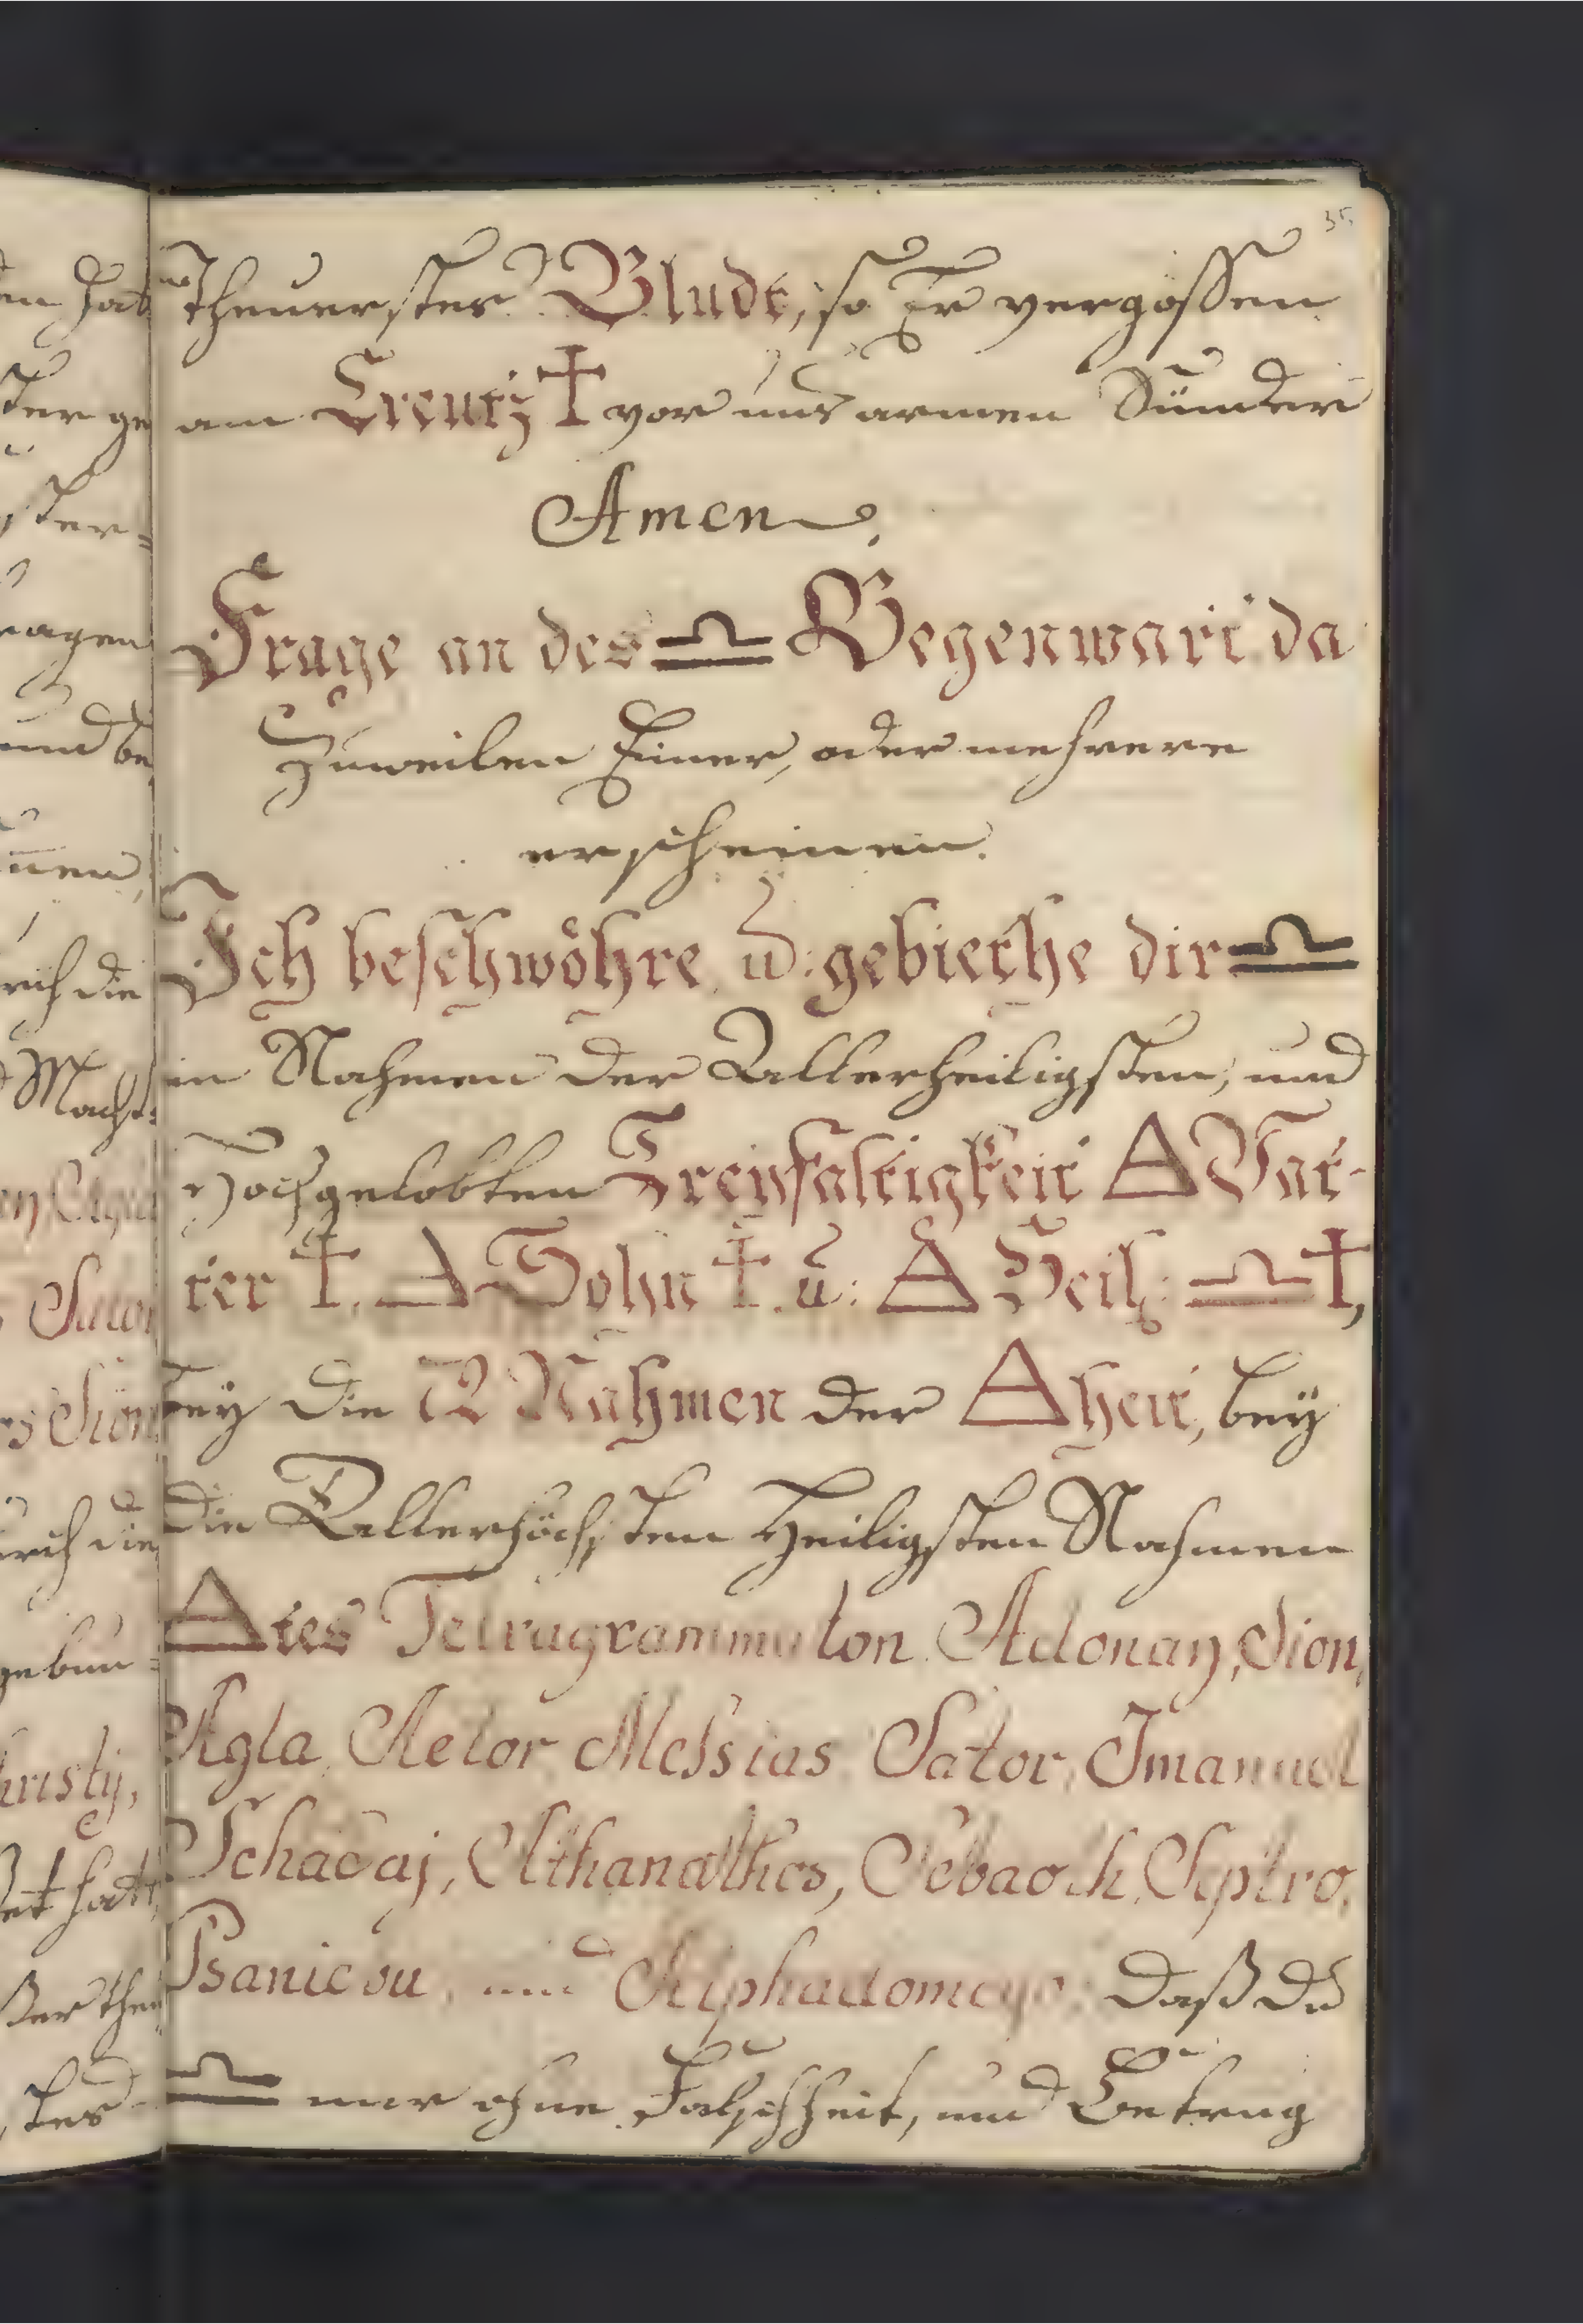 35
Theuerstes Bludt, so Er vergossen
am Creutz ✝ vor uns armen Sünder
Amen.
Frage an des ♎ Gegenwart da
Zuweilen Einer, oder mehrere
erscheinen.
Ich beschwöhre u: gebiethe dir ♎
in Nahmen der Allerheiligsten, und
Hochgelobten Dreyfaltigkeit △ Vat-
ter ✝, △ Sohn ✝. u: △ Heil: ♎ ✝,
bey die 72 Nahmen der △heit, bey
die Allerhöchsten Heiligsten Nahmen
△tes Tetragrammaton Adonay, Sion,
Agla, Aetor Messias Sator, Imanuel
Schadaj, Athanathos, Sebaoth,
und daß Du
♎ mir ohne Falschheit, und Betrug